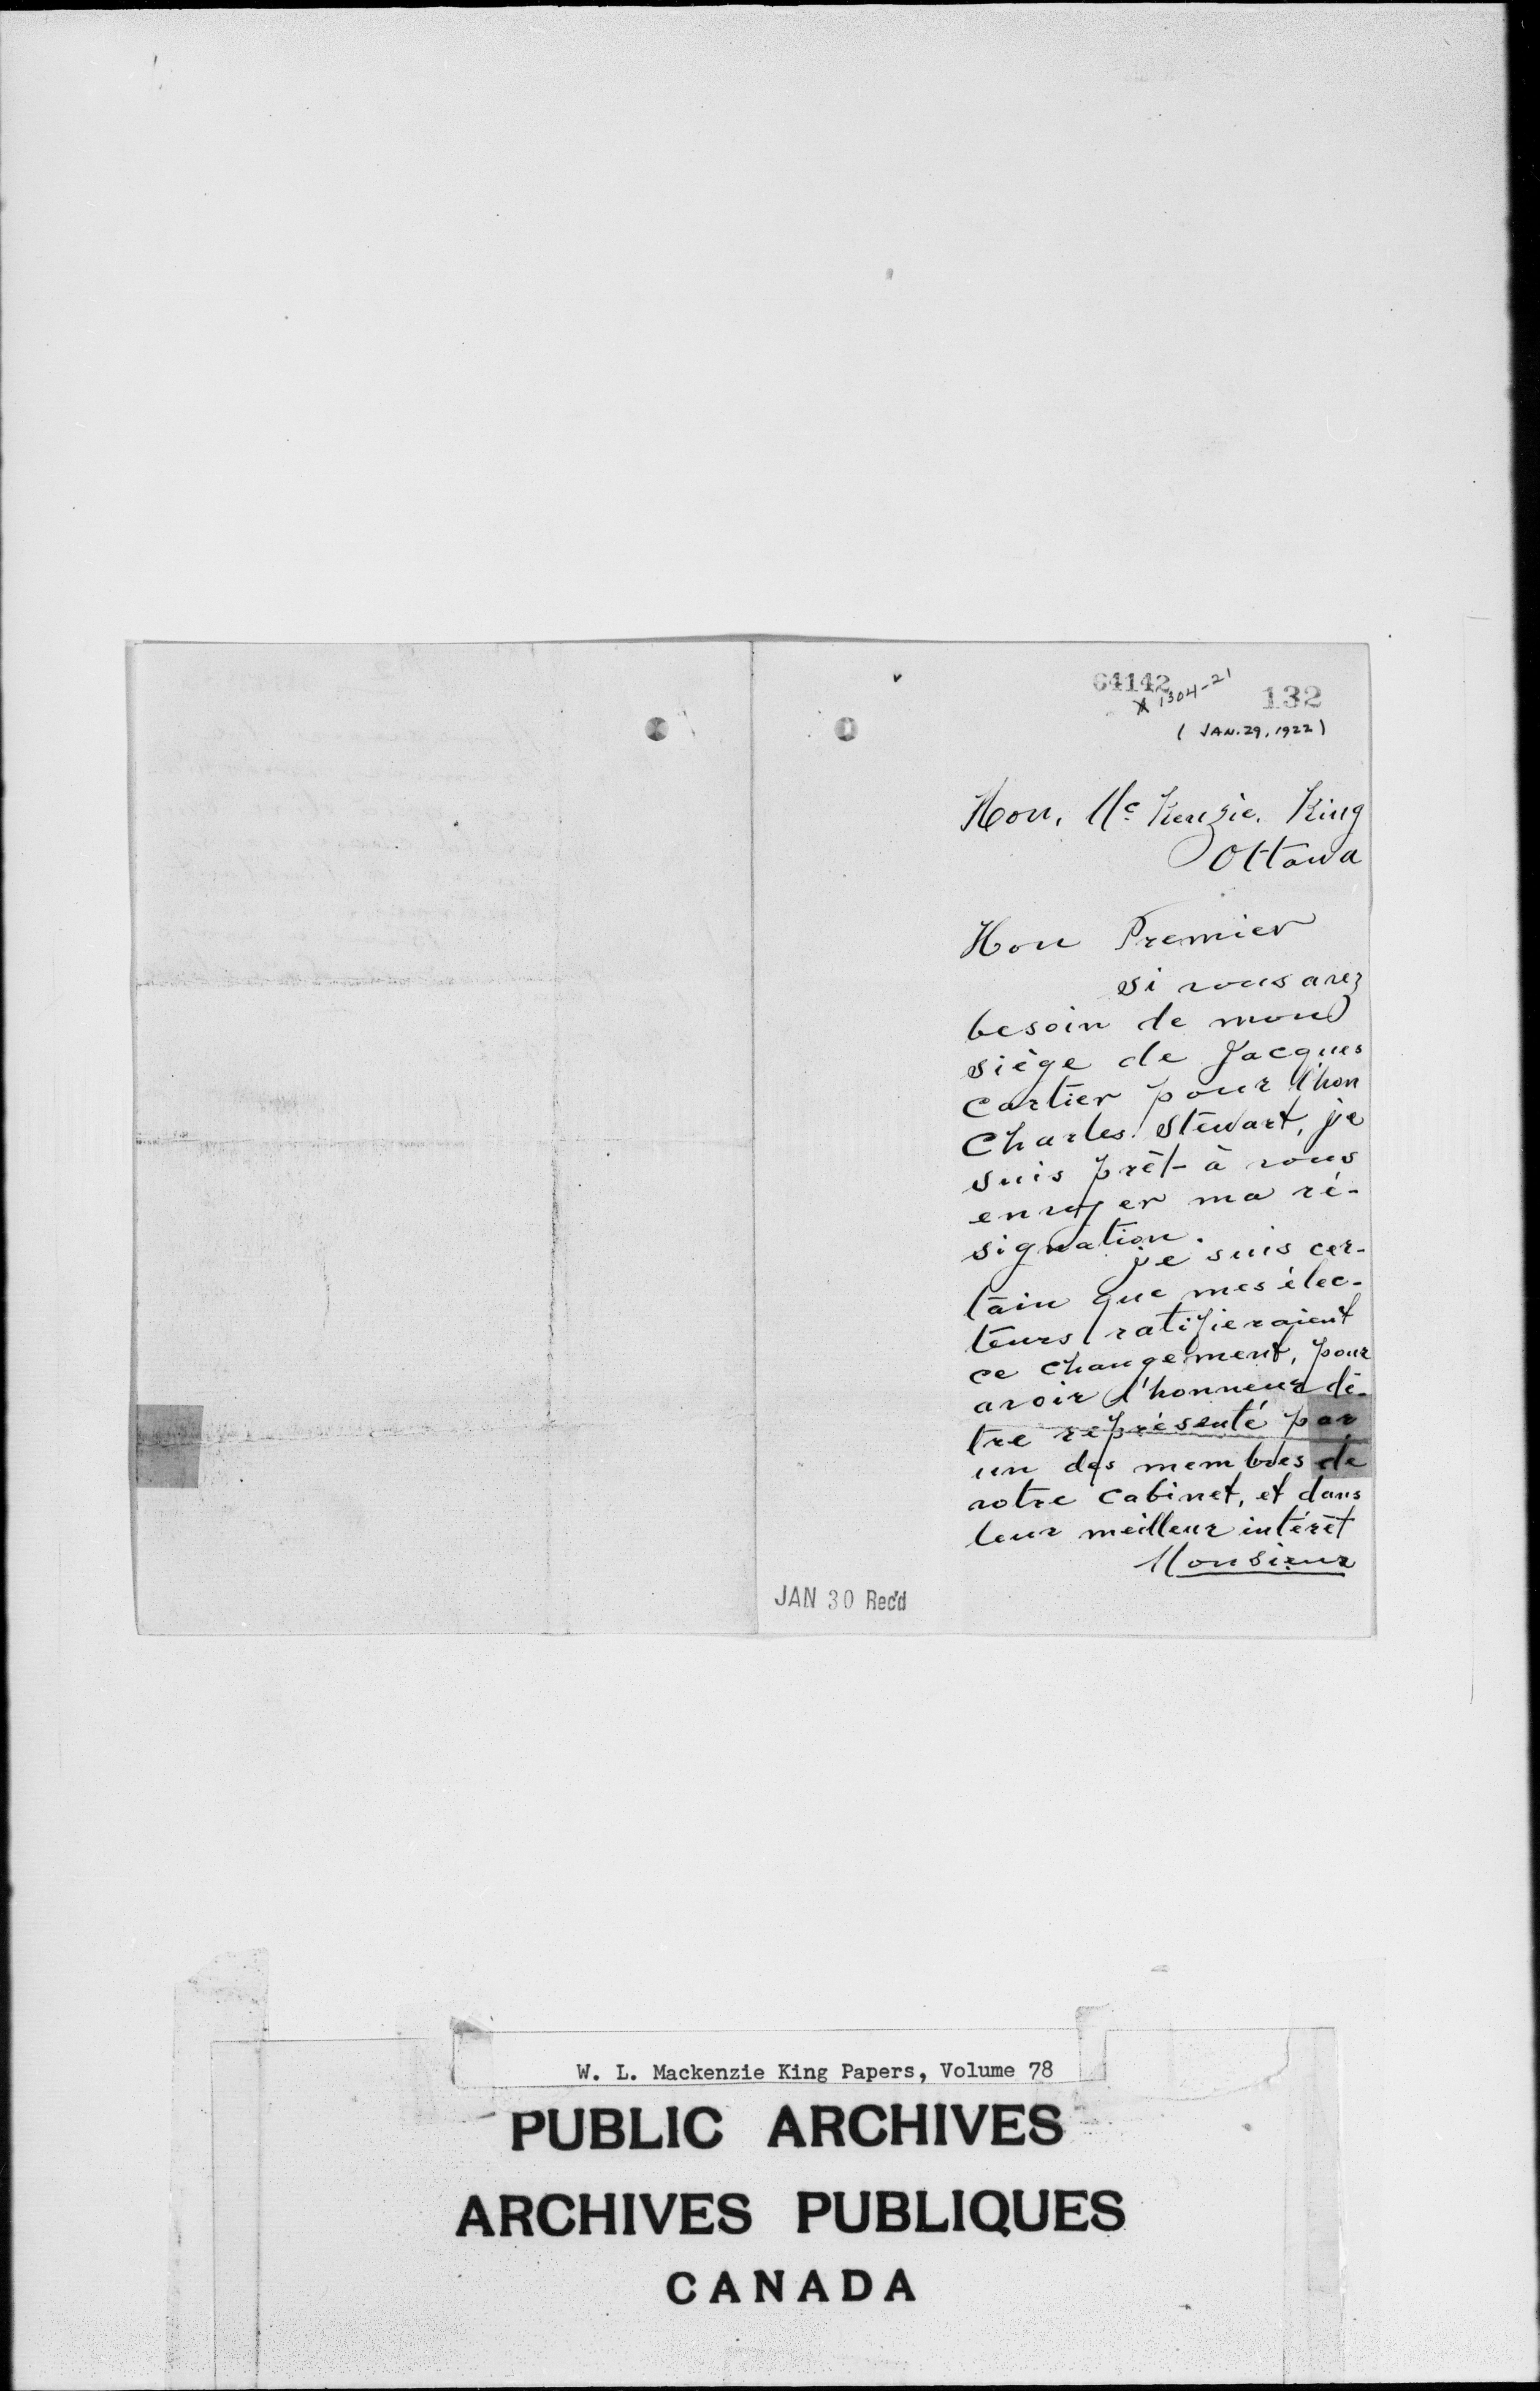 64142
X 1304-21
132
(JAN. 29, 1922)
Hon. Mc Kenzie. King
Ottawa
Hon Premier
Si vous avez
besoin de mon
siège de Jacques
Cartier pour l'hon
Charles Stewart, je
suis prêt à vous
envoyer ma ré-
signation.
je suis cer-
tain que mes élec-
teurs ratifieraient
ce changement, pour
avoir l'honneur dê-
tre représenté par
un des membres de
votre cabinet, et dans
leur meilleur intérêt
Monsieur
JAN 30 Rec'd
W. L. Mackenzie King Papers, Volume 78
PUBLIC ARCHIVES
ARCHIVES PUBLIQUES
CANADA